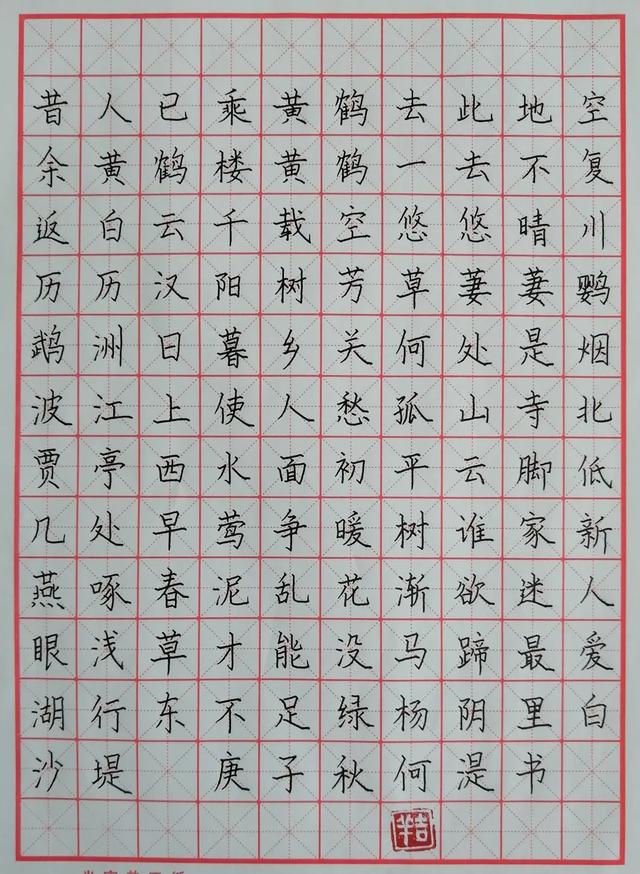 昔人已乘黄鹤去此地空
余黄鹤楼黄鹤一去不复
返白云千载空悠悠晴川
历历汉阳树芳草萋萋鹦
鹉洲日暮乡关何处是烟
波江上使人愁孤山寺北
贾亭西水面初平云脚低
几处早莺争暖树谁家新
燕啄春泥乱花渐欲迷人
眼浅草才能没马蹄最爱
湖行东不足绿杨阴里白
沙堤 庚子秋何湜书
吉羊